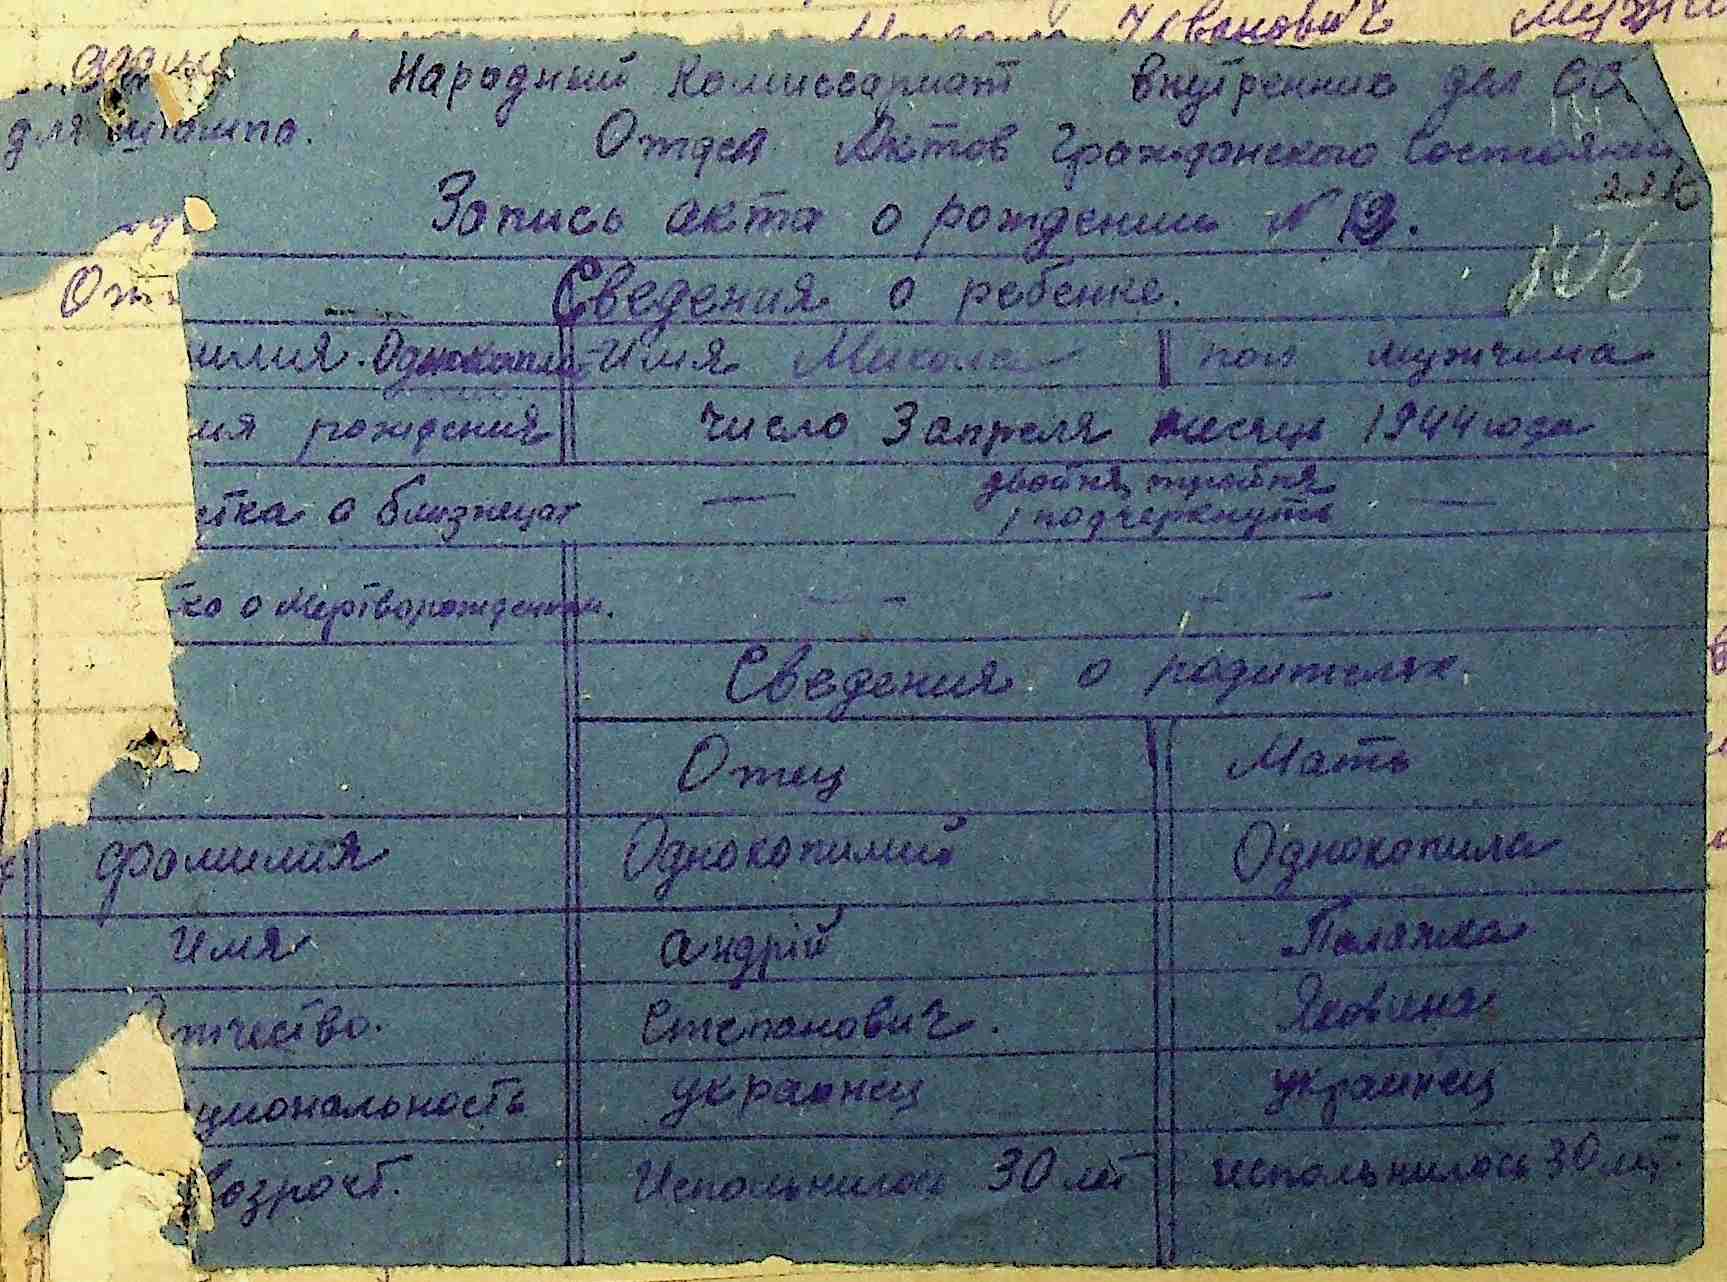 Иванович
Народный Комиссариат внутренних дел СС
для штампа. Отдел Актов Гражданского Состояния
Запись акта о рождении № 13.
106
Сведения о ребенке.
илия Однокопи Имя Микола пол мужчина
ия рождения число 3 апреля месяць 1944 года
етка о близнецах — двойня, тройня —
подчеркнуть
ка о мертворожденом. — — — —
Сведения о родителях.
Отец Мать
Фамилия Однокопилий Однокопила
Имя Андрій Палажка
тчество. Степанович. Яковина
циональность украинец украинец
возраст. Испольнилось 30 лет испольнилось 30 лет.